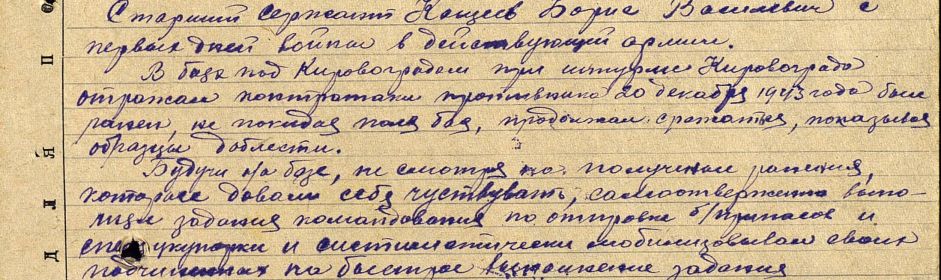 Старший сержант Кащеев Борис Василевич с
первых дней войны в действующей армии.
В боях под Кировоградом при штурме Кировограда
отражал контратаки противника 20 декабря 1943 года был
ранен, не покидая поля боя, продолжал сражаться, показывая
образцы доблести.
Будучи на базе, не смотря на получен ранения,
которые давали себя чуствувать, самоотверженно выпо-
лнял задания командования по отправке б/припасов и
укупорки и систиматически мобилизовывал своих
подчиненных на быстрое выполнение задания
П
Я
Л
Д